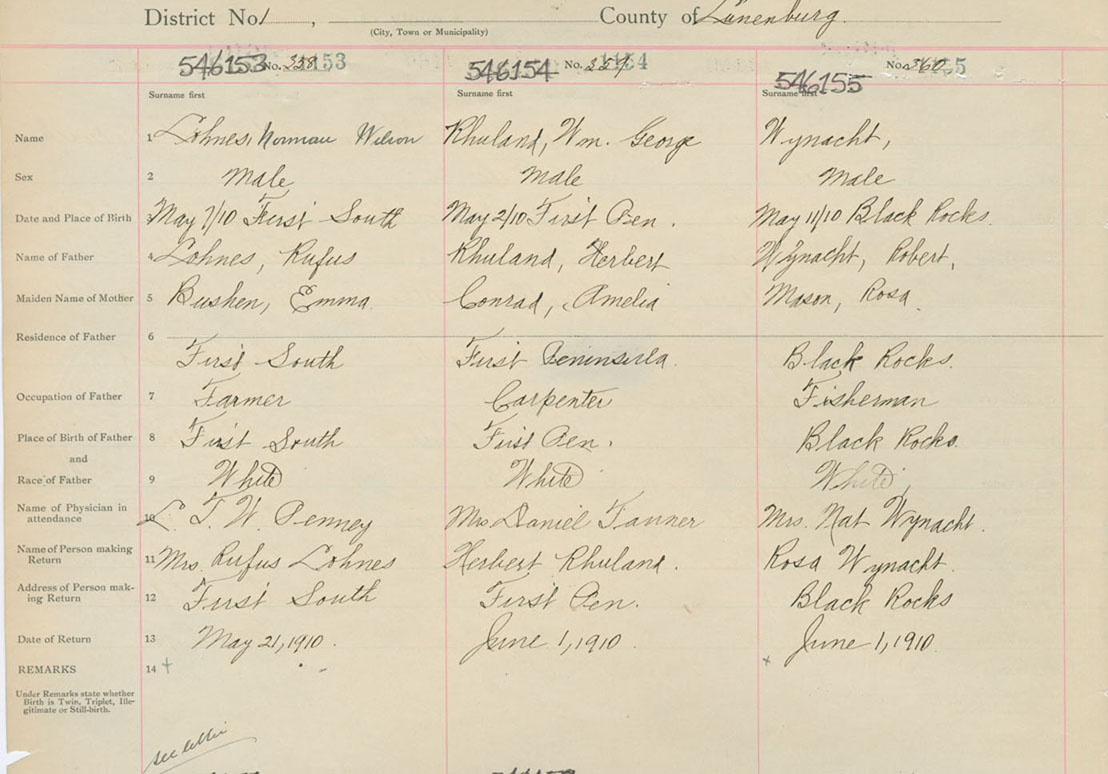 District No. 1 , County of Lunenburg.
(City, Town or Municipality)
546153 No. 358 546154 No. 359 546155 No. 360
Surname first Surname first Surname first
Name 1 Lohnes, Norman Wilson Rhuland, Wm. George Wynacht,
Sex 2 Male Male Male
Date and Place of Birth 3 May 7/10 First South May 2/10 First Pen. May 11/10 Black Rocks.
Name of Father 4 Lohnes, Rufus Rhuland, Herbert Wynacht, Robert,
Maiden Name of Mother 5 Bushen, Emma Conrad, Amelia Mason, Rosa
Residence of Father 6
First South First Peninsula. Black Rocks.
Occupation of Father 7 Farmer Carpenter Fisherman
Place of Birth of Father 8 First South First Pen. Black Rocks.
and
Race of Father 9 White White White
Name of Physician in
attendance 10 T. W. Penney Mrs Daniel Tanner Mrs. Nat Wynacht.
Name of Person making
Return 11 Mrs. Rufus Lohnes Herbert Rhuland. Rosa Wynacht.
Address of Person mak-
ing Return 12 First South First Pen. Black Rocks
Date of Return 13 May 21, 1910. June 1, 1910. June 1, 1910.
REMARKS 14
Under Remarks state whether
Birth is Twin, Triplet, Ille-
gitimate or Still-birth.
see